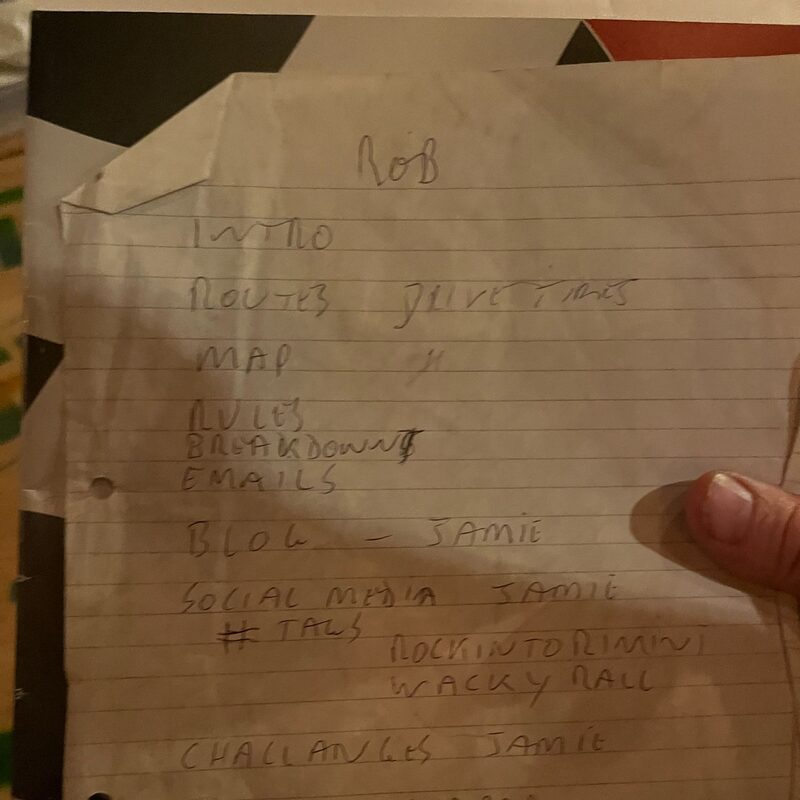 ROB
INTRO
ROUTES DRIVE TIMES
MAP "
RULES
BREAKDOWNS
EMAILS
BLOG - JAMIE
SOCIAL MEDIA JAMIE
# TAGS
ROCKINTORIMINI
WACKY RALL
CHALLANGES JAMIE